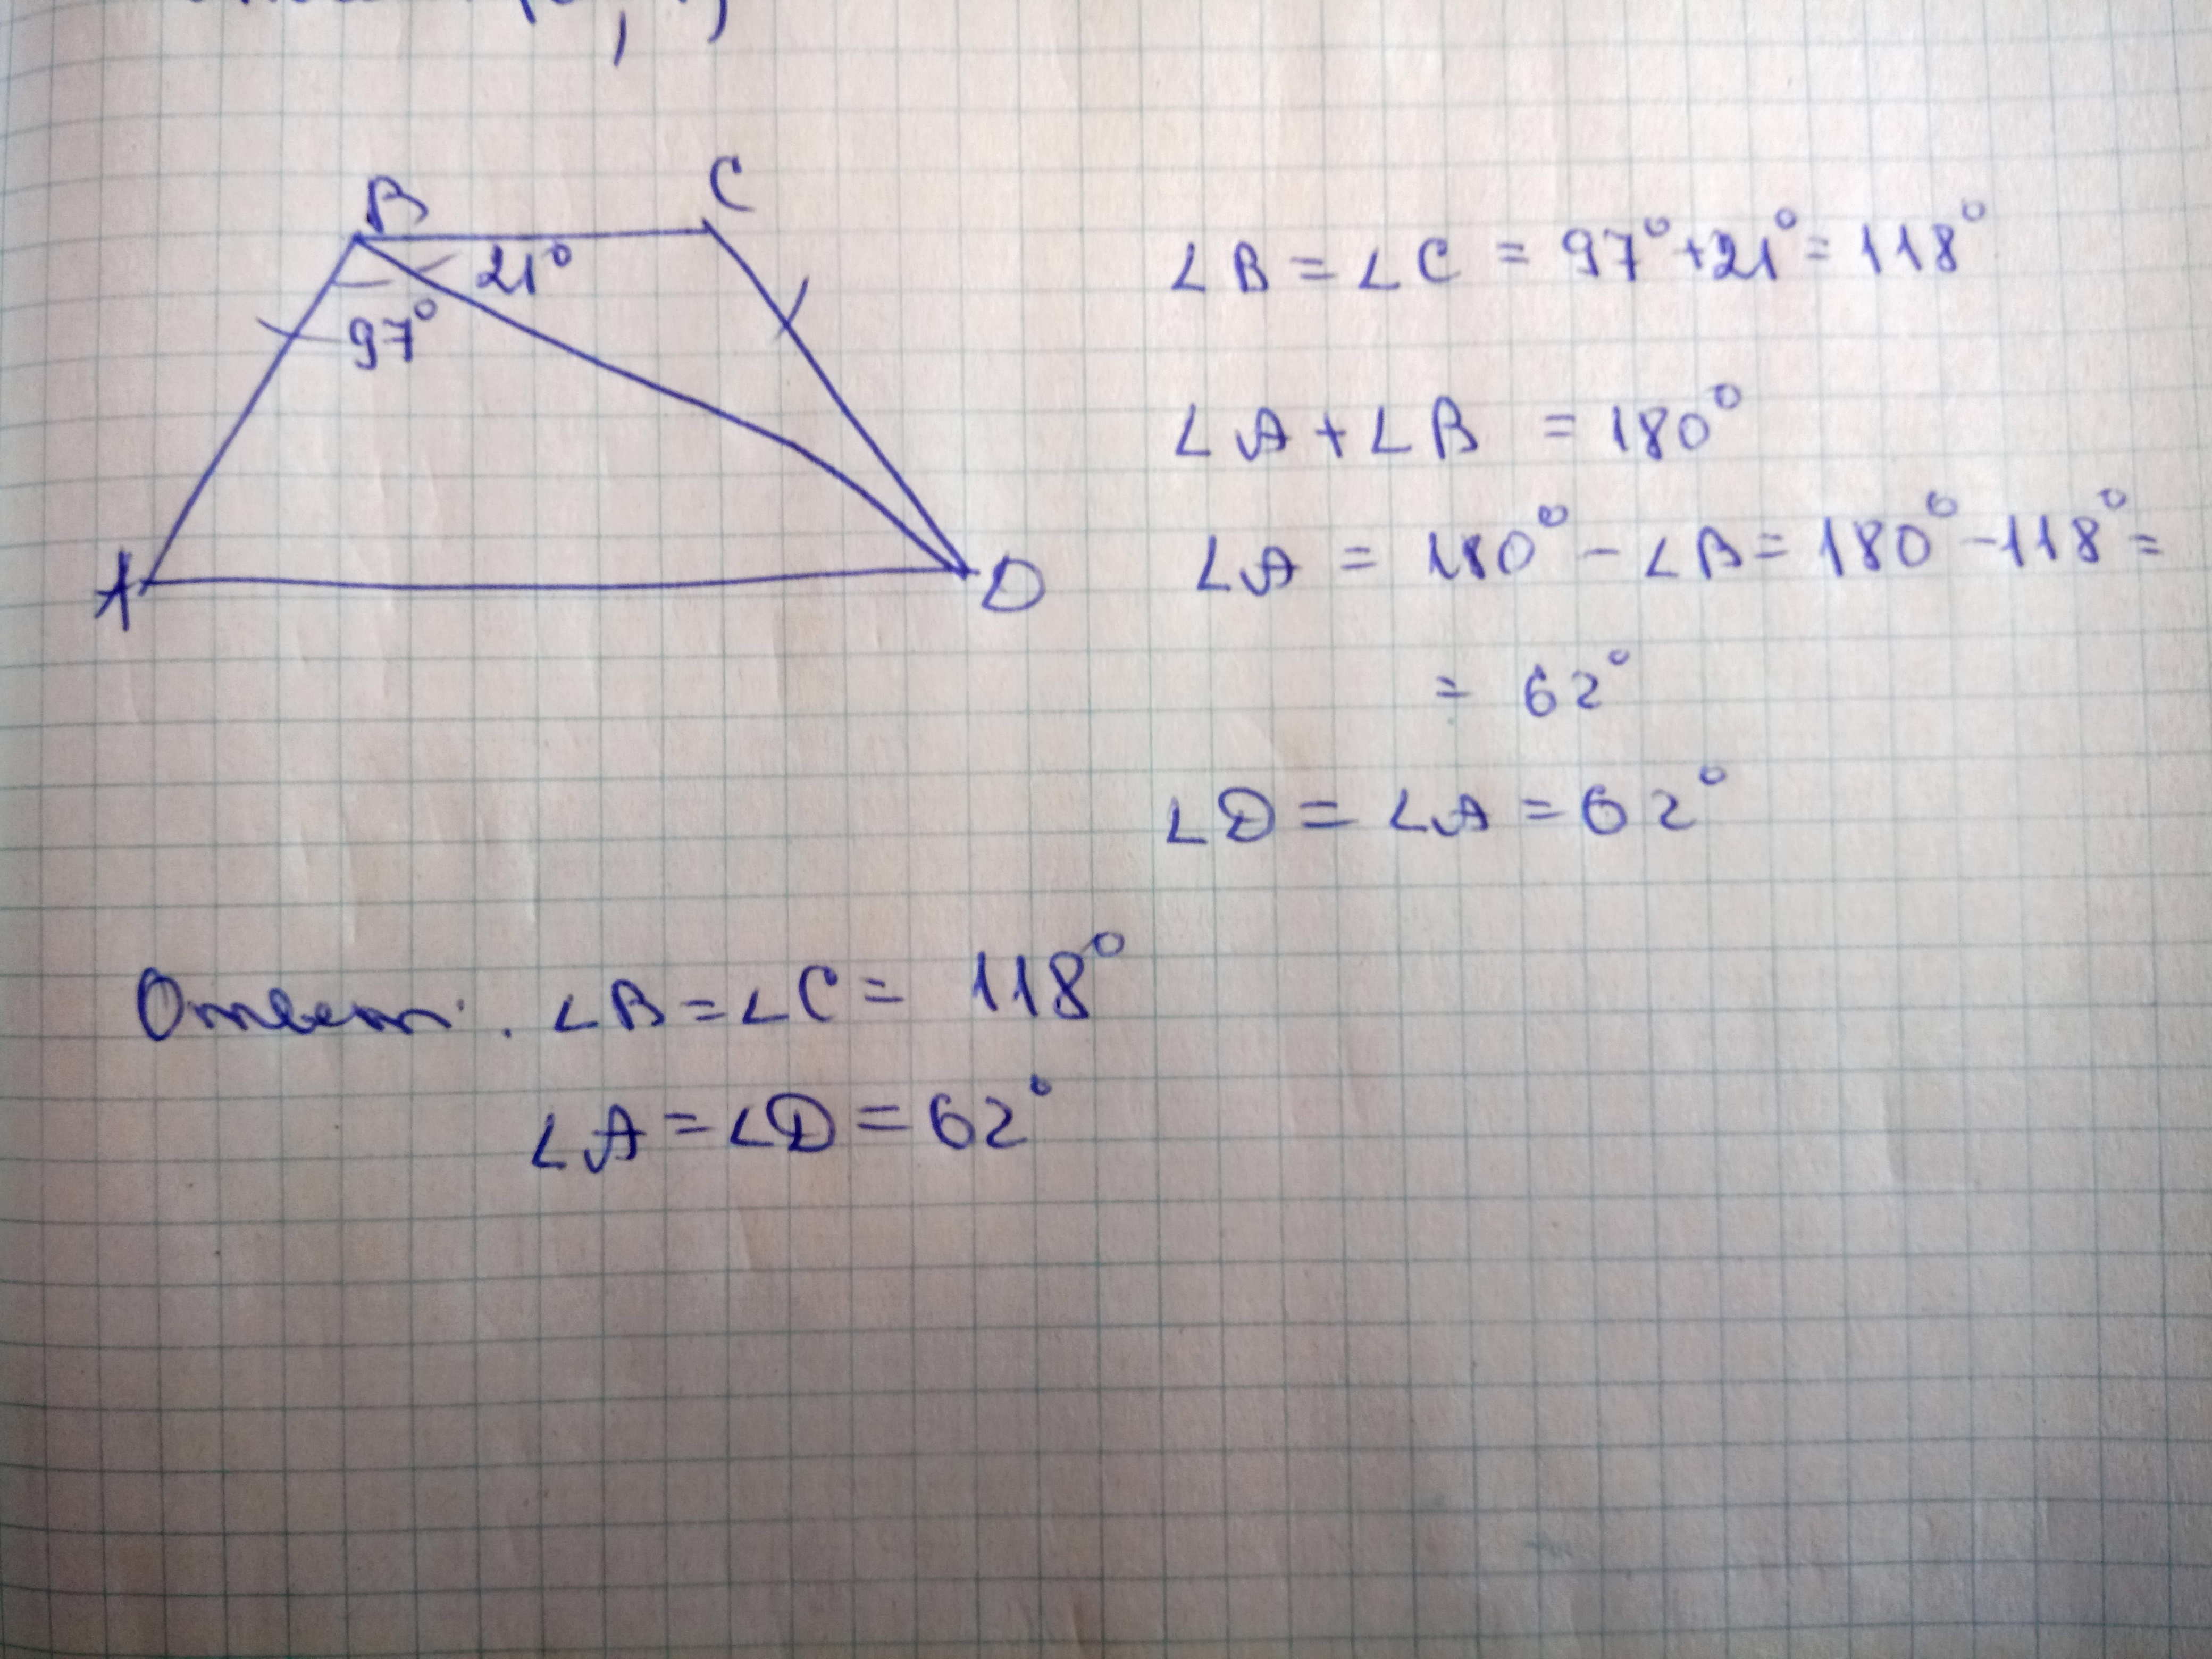 B
C
21°
97°
A
D
∠B = ∠C = 97°+21°= 118°
∠A + ∠B = 180°
∠A = 180° - ∠B = 180° - 118° =
= 62°
∠D = ∠A = 62°
Ответ: ∠B = ∠C = 118°
∠A = ∠D = 62°